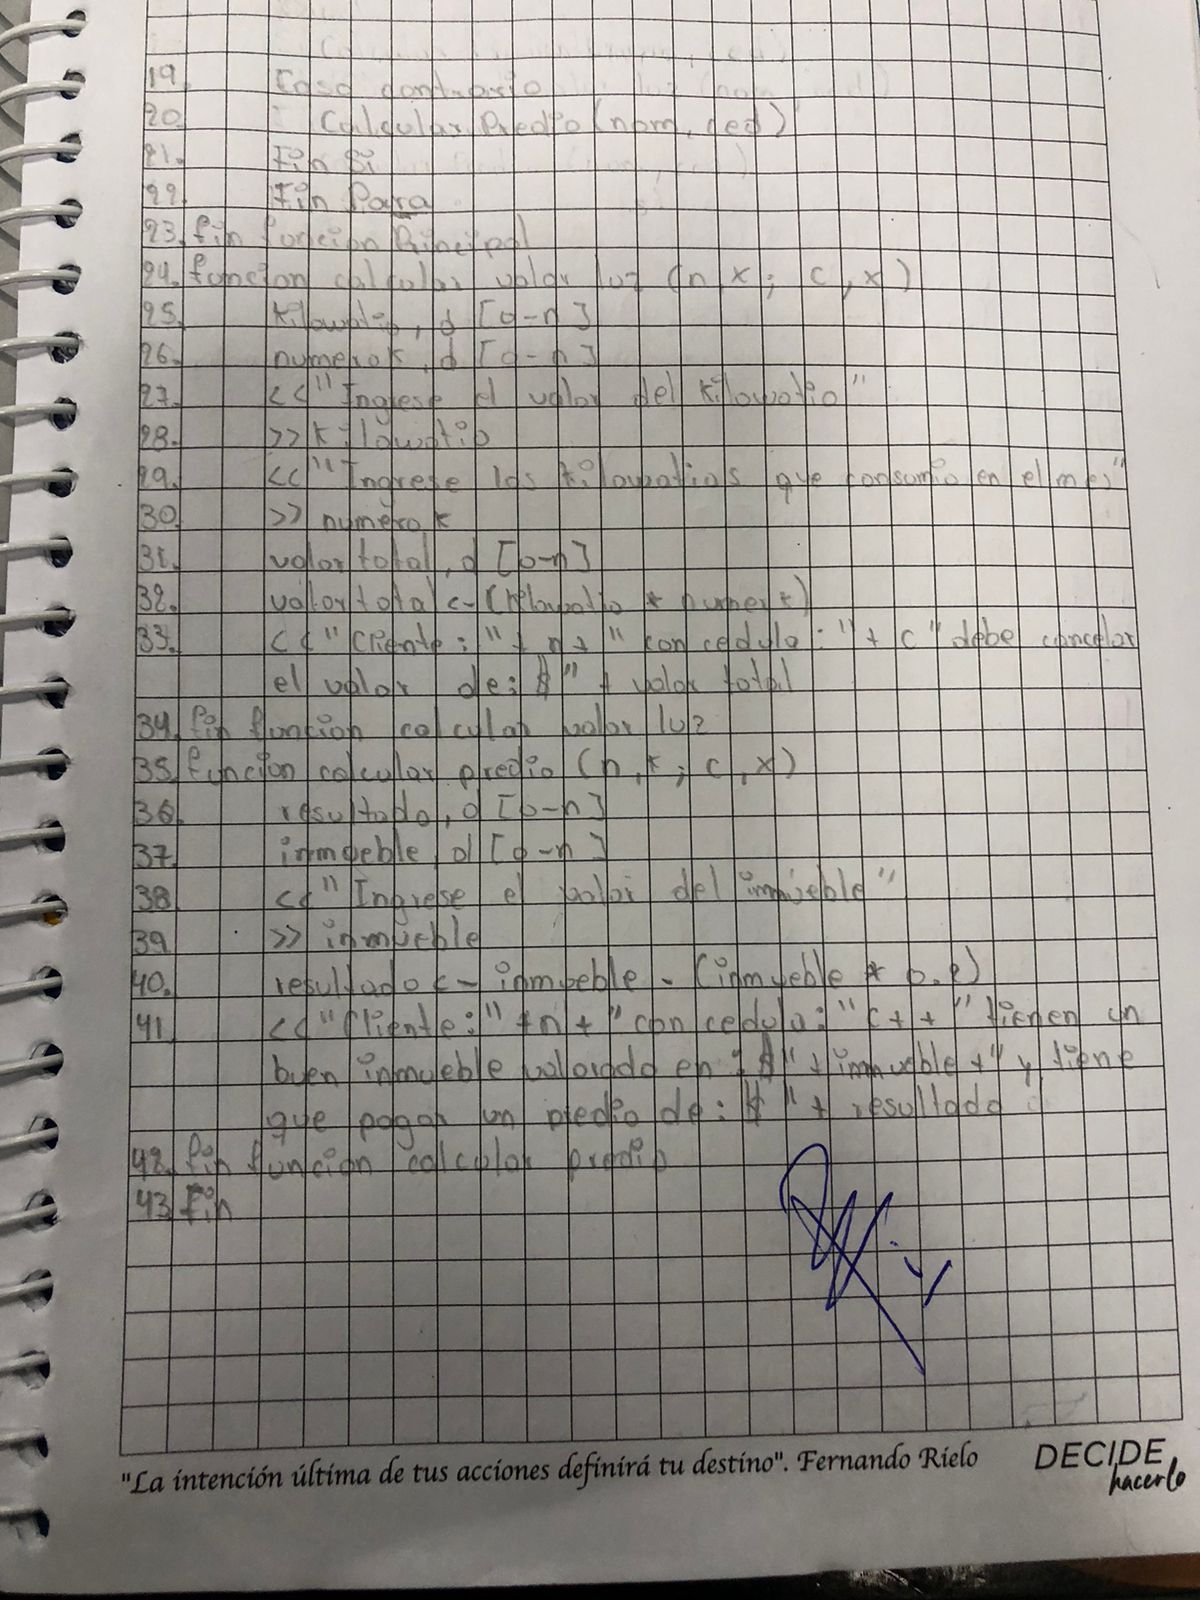 19. Caso contrario
20. Calcular Predio (nom, ced)
21. Fin Si
22. Fin Para
23. fin funcion Principal
24. funcion calcular valor luz (n,x; c,x)
25. kilowatio, d [0-n]
26. numerok, d [0-n]
27. <<"Ingrese el valor del kilowatio"
28. >> kilowatio
29. <<"Ingrese los kilowatios que consumio en el mes"
30 >> numero k
31. valor total, d [0-n]
32. valor total <- (kilowatio * numerk)
33. <<"Cliente:" + n + "con cedula:" + c "debe cancelar
el valor de: $" + valor total
34. fin funcion calcular valor luz
35 funcion calcular predio (n,x; c,x)
36 resultado, d [0-n]
37 inmueble, d [0-n]
38 <<"Ingrese el valor del inmueble"
39 >> inmueble
40. resultado <- inmueble - (inmueble * 0.2)
41 <<"Cliente:" +n+ "con cedula:" c++ "tienen un
buen inmueble valorado en: $" + inmueble +" y tiene
que pagar un predio de: $" + resultado
42. fin funcion calcular predio
43 Fin
"La intención última de tus acciones definirá tu destino". Fernando Rielo
DECIDE
hacerlo